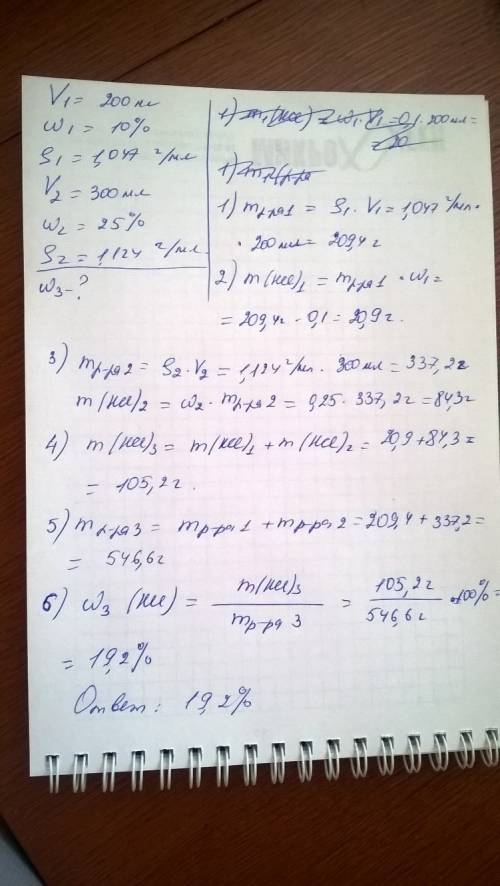 V₁ = 200 мл
ω₁ = 10%
ρ₁ = 1,047 г/мл
V₂ = 300 мл
ω₂ = 25%
ρ₂ = 1,124 г/мл
ω₃ - ?
1) m₁(HCl) = ω₁ · V₁ = 0,1 · 200 мл =
= 20
1) m₁(р-ра
1) mр-ра1 = ρ₁ · V₁ = 1,047 г/мл ·
· 200 мл = 209,4 г
2) m(HCl)₁ = mр-ра1 · ω₁ =
= 209,4 г · 0,1 = 20,9 г.
3) mр-ра2 = ρ₂ · V₂ = 1,124 г/мл · 300 мл = 337,2 г
m(HCl)₂ = ω₂ · mр-ра2 = 0,25 · 337,2 г = 84,3 г
4) m(HCl)₃ = m(HCl)₁ + m(HCl)₂ = 20,9 + 84,3 =
= 105,2 г.
5) mр-ра3 = mр-ра1 + mр-ра2 = 209,4 + 337,2 =
= 546,6 г
6) ω₃ (HCl) = m(HCl)₃ / mр-ра 3 = 105,2 г / 546,6 г · 100% =
= 19,2%
Ответ: 19,2%